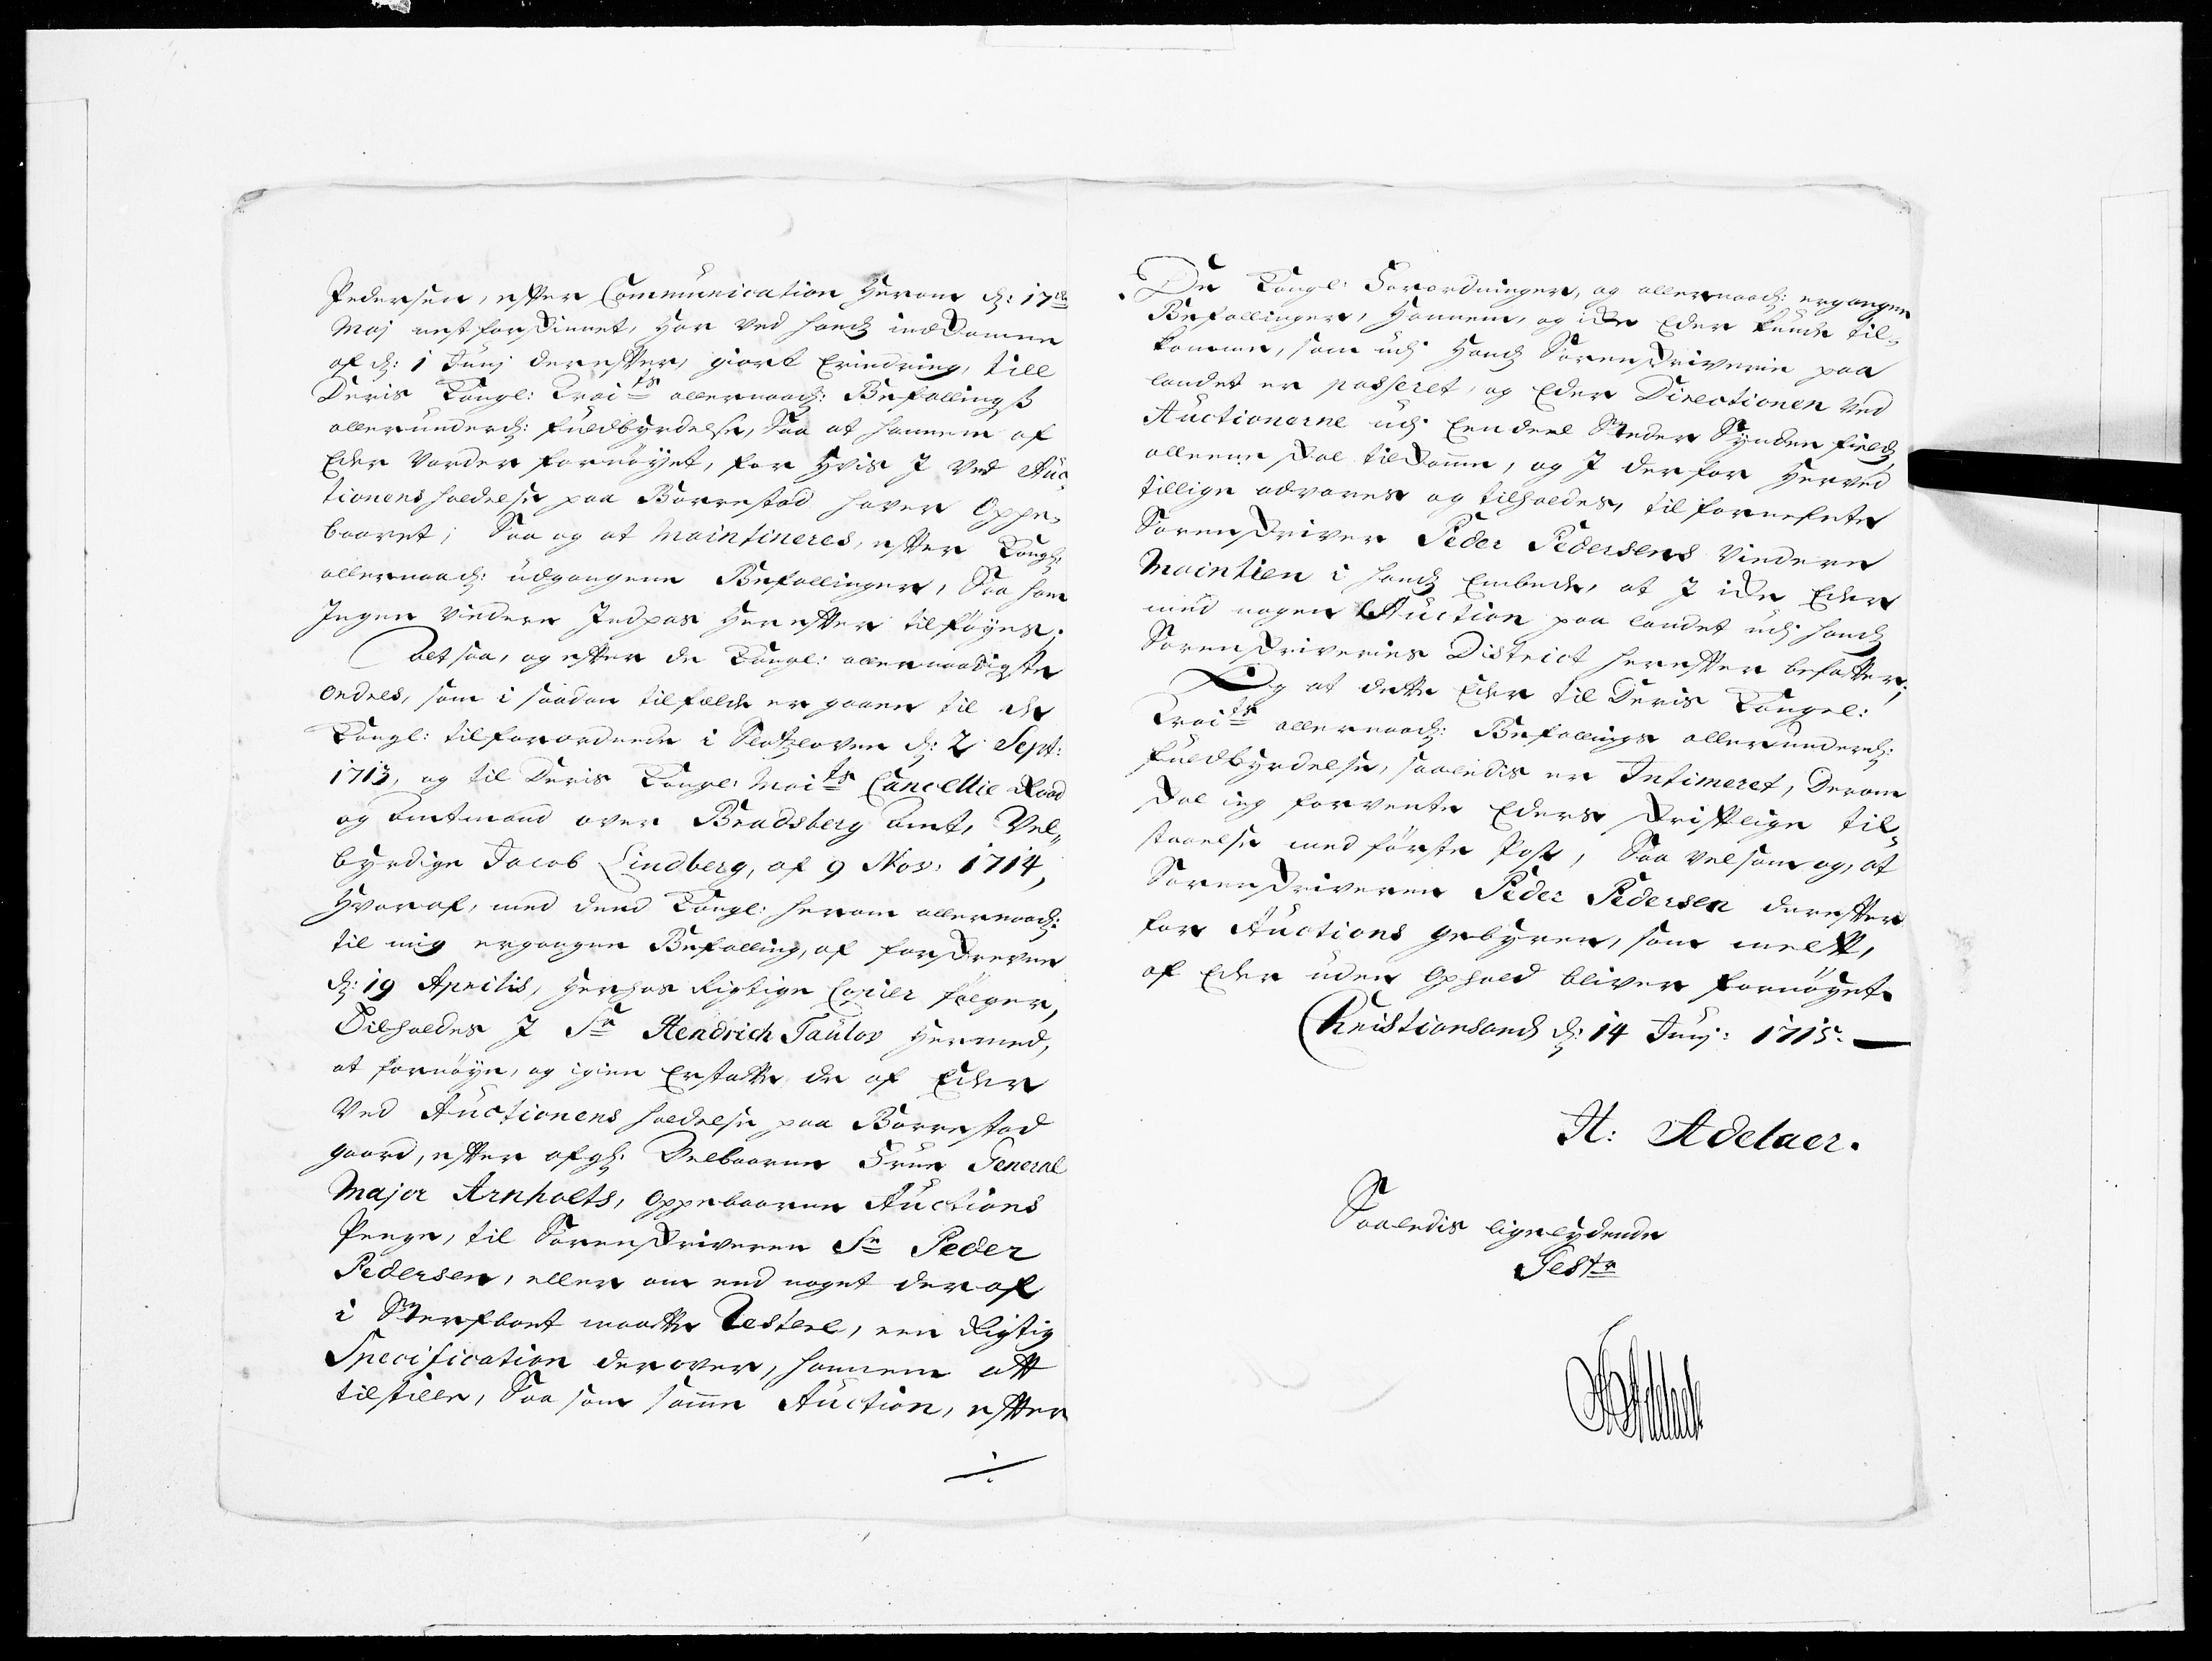 Pedersen, efter Communication herom d: 17de
Maj nest forskinnet, har ved hands indkomne
af d: 1 Junj derefter, giort Erindring, till
Deris Kongl: Maits allernaad: Befallings
allerunderd: fuldbyrdelse, Saa at hannem af
Eder vorder fornøyet, for hvis I ved Auc-
tionens holdelse paa Borrestad haver Oppe-
baaret; Saa og at maintineres, efter Kongl:
allernaad: udgangene Befallinger, Saa som
Ingen videre Indpas herefter tilføyes.
Alt saa, og efter de Kongl: allernaadigste
ordres, som i saadan tilfælde er gaaen til de
Kongl: tilforordnede i Slotzloven d: 2 Sept:
1713, og til Deris Kongl: Maits Cancellie Raad
og Amtmand over Bradsberg Amt, Vel-
byrdige Jacob Lindberg, af 9 Nov: 1714,
Hvoraf, med dend Kongl: herom allernaad:
til mig ergangen Befalling, af forskreven
d: 19 Aprilis, herhos Rigtige Copier følger,
Tilholdes I Sr Hendrich Taulov hermed,
at fornøye, og igien Erstatte de af Eder
ved Auctionens holdelse paa Borrestad
gaard, efter afgl: Velbaarne Frue General
Major Arnholts, Oppebaarne Auctions
Penge, til Sorenskriveren Sr Peder
Pedersen, eller om end noget deraf
i Sterfboet maatte Restere, en Rigtig
Specification derover, hannem att
tilstille, Saa som samme Auction, efter
De Kongl: Forordninger, og allernaad: ergangne
Befallinger, Hannem, og icke Eder kunde til-
komme, som udj hands Sorenskriverie paa
landet er passeret, og Eder Directionen ved
Auctionerne udj Eendeel Steder Synden fields
alleene skal tilkomme, og I derfor herved
tillige advares og tilholdes, til fornefnte
Sorenskriver Peder Pedersens videre
Maintien i hands Embede, at I icke Eder
med nogen Auction paa landet udj hands
Sorenskriveries District herefter befatter;
Og at dette Eder til Deris Kongel:
Maits allernaad: Befallings allerunderd:
fuldbyrdelse, saaledis er Intimeret, Derom
skal ieg forvente Eders skriftlige til-
staaelse med første Post, Saa vel som og, at
Sorenskriveren Peder Pedersen derefter
for Auctions gebyren, som melt,
af Eder uden Ophold bliver fornøyet.
Christiansand d: 14 Junj: 1715.
H: Adelaer.
Saaledis ligelydende
Testr
HAdelaer